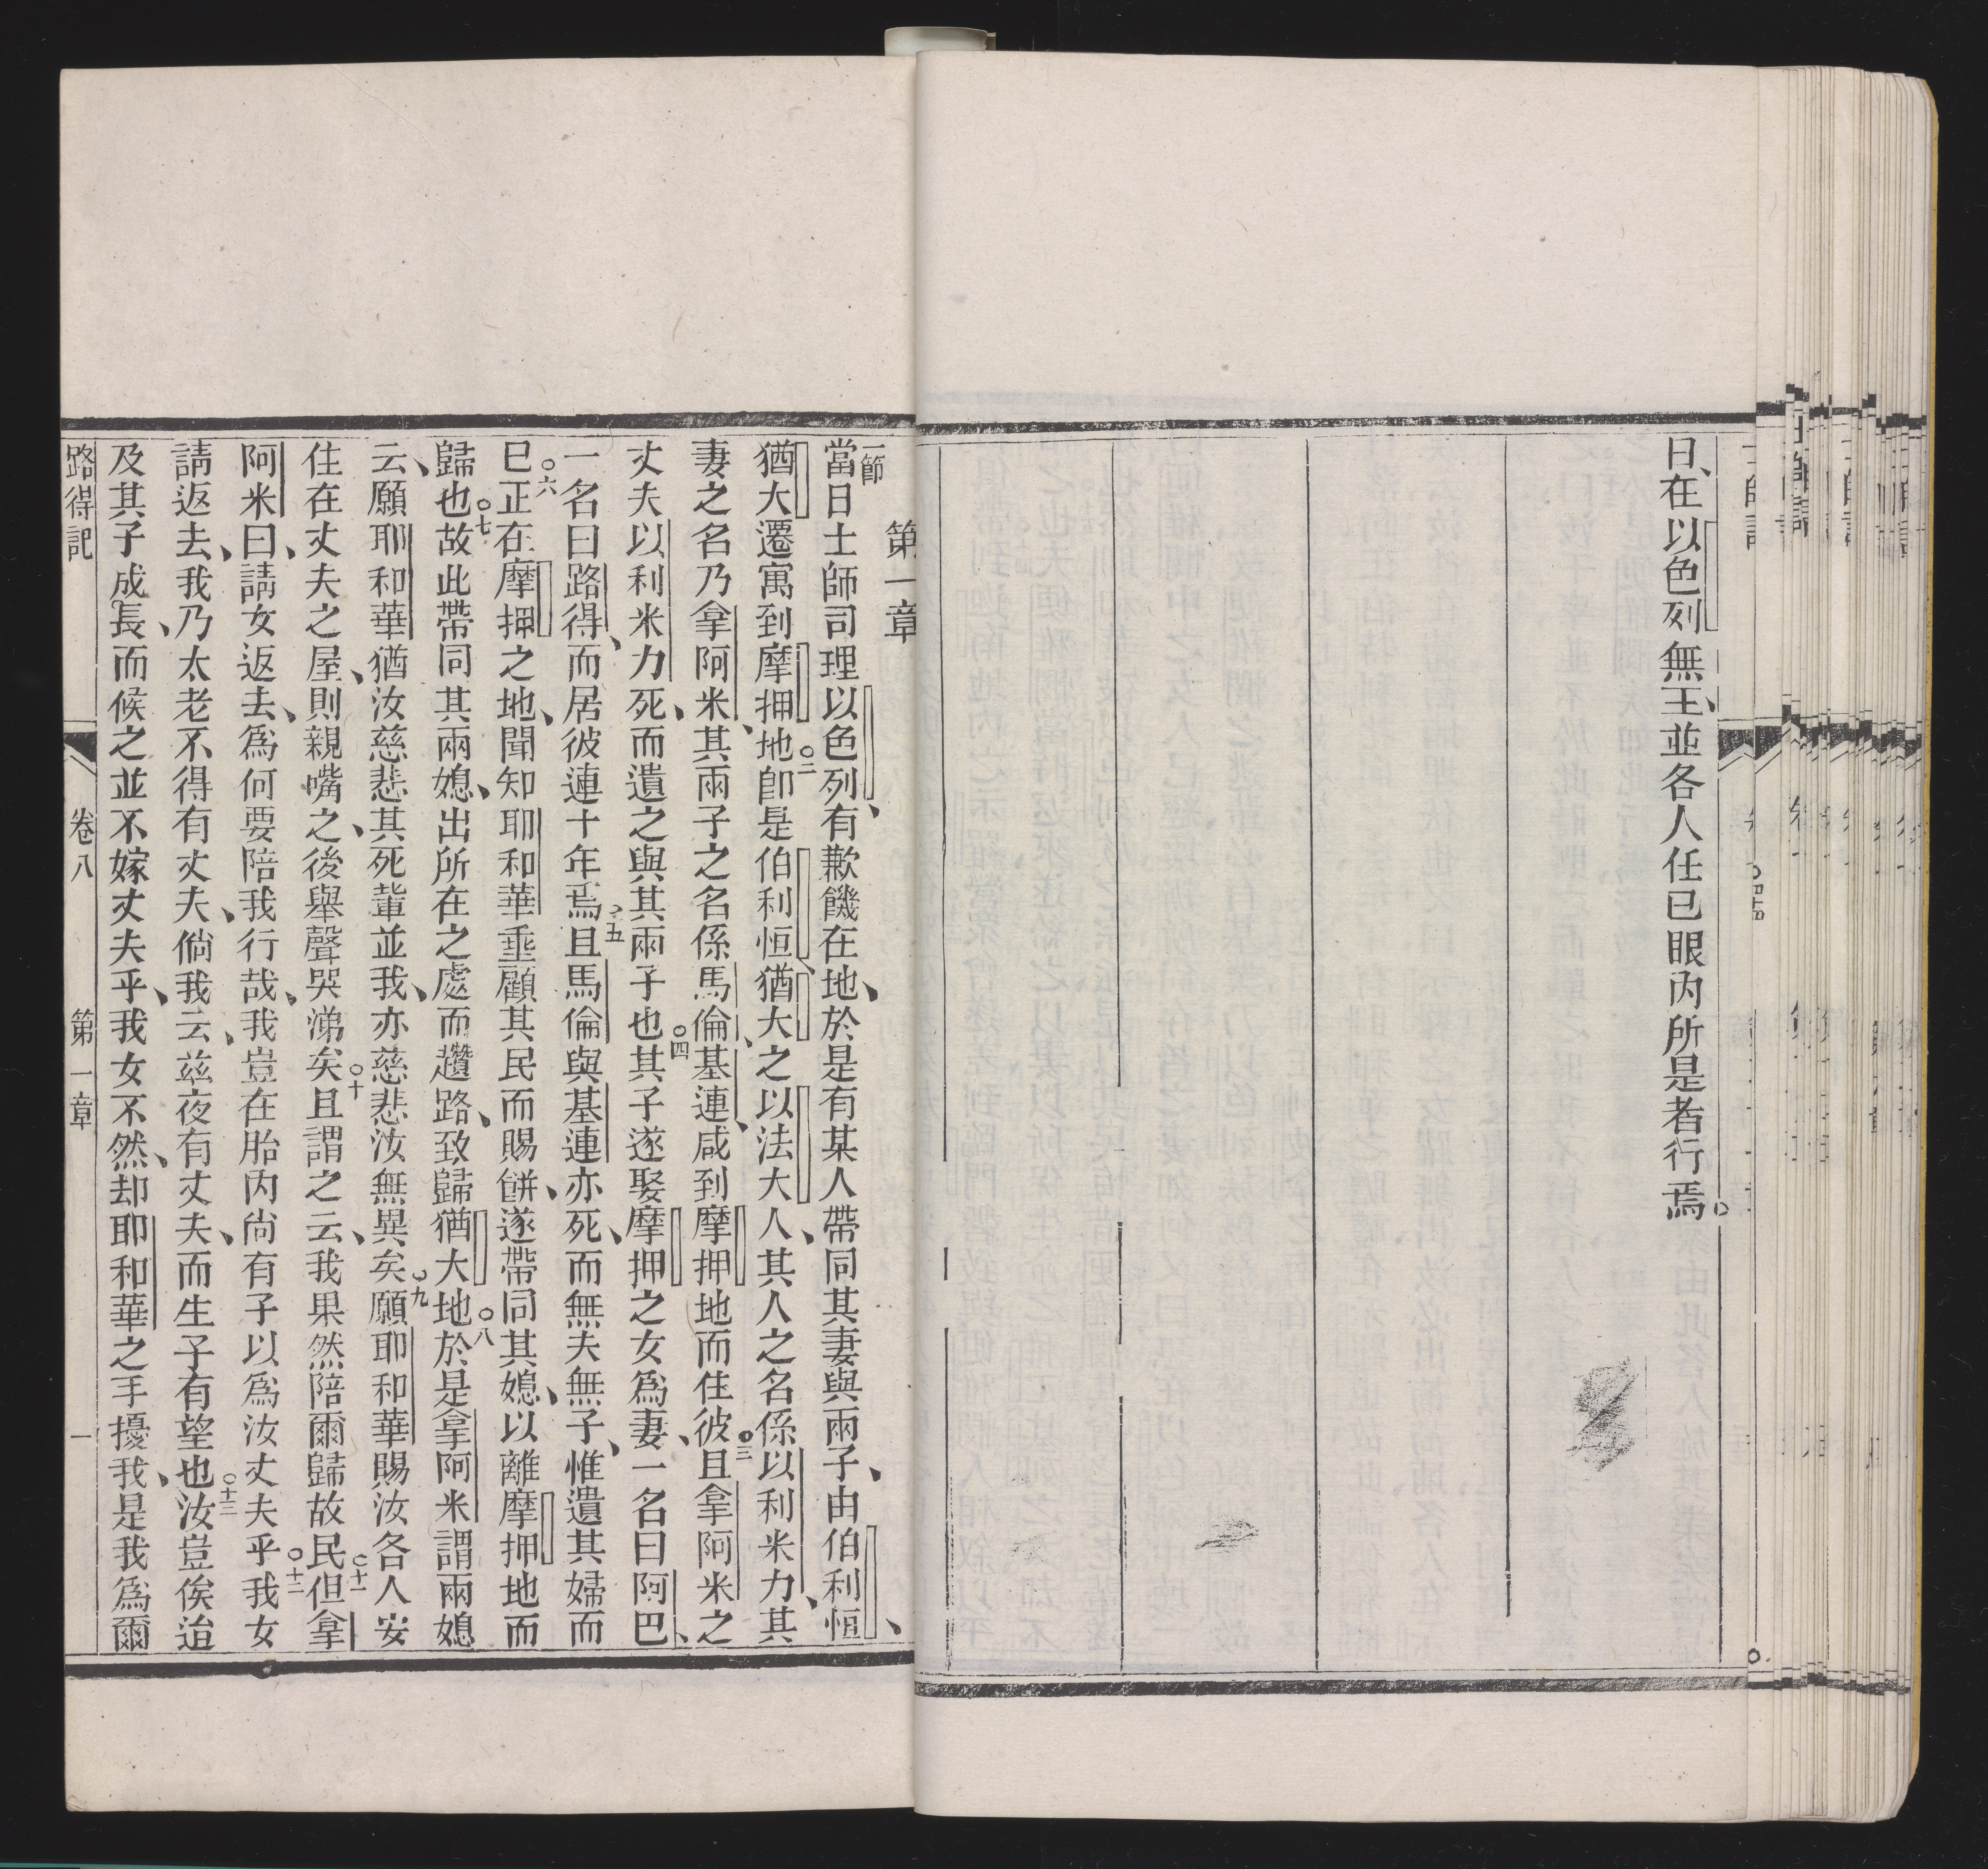 日、在以色列無王、並各人任己眼內所是者行焉。
第一章
一節
當日士師司理以色列、有歉饑在地、於是有某人帶同其妻與兩子、由伯利恒、
猶大遷寓到摩押地○二卽是伯利恒、猶大之以法大人、其人之名係以利米力、其
妻之名乃拿阿米、其兩子之名係馬倫、基連、咸到摩押地而住彼○三且拿阿米之
丈夫以利米力死、而遺之與其兩子也○四其子遂娶摩押之女爲妻、一名曰阿巴、
一名曰路得、而居彼連十年焉○五且馬倫與基連亦死、而無夫無子、惟遺其婦而
已○六正在摩押之地、聞知耶和華垂顧其民而賜餅、遂帶同其媳、以離摩押地而
歸也○七故此帶同其兩媳、出所在之處而趲路、致歸猶大地○八於是拿阿米謂兩媳
云、願耶和華猶汝慈悲其死輩並我、亦慈悲汝無異矣○九願耶和華賜汝各人安
住在丈夫之屋、則親嘴之、後舉聲哭涕矣○十且謂之云、我果然陪爾歸故民○十一但拿
阿米曰、請女返去、爲何要陪我行哉、我豈在胎內尚有子以爲汝丈夫乎○十二我女
請返去、我乃太老不得有丈夫、倘我云、茲夜有丈夫、而生子有望也○十三汝豈俟迨
及其子成長、而候之並不嫁丈夫乎、我女不然、却耶和華之手擾我、是我爲爾
路得記 卷八 第一章 一